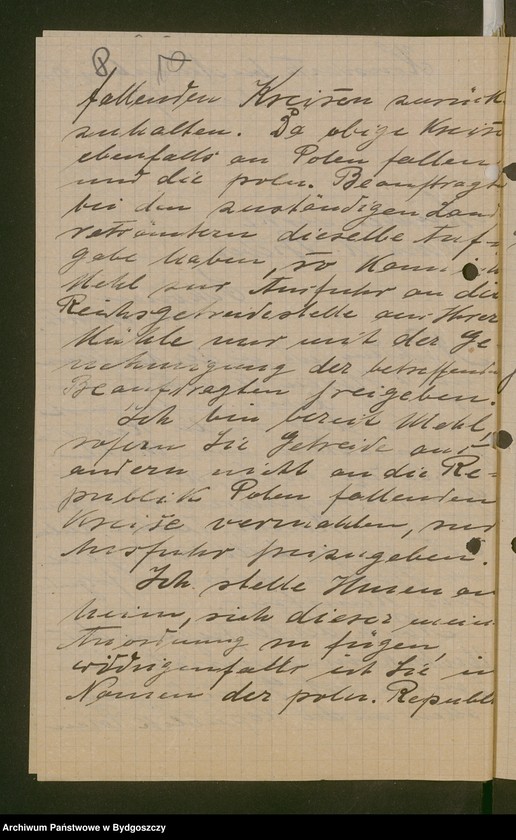 8
fallenden Kreisen zurück
zuhalten. Da obige Kreise
ebenfalls an Polen fallen
und die poln. Beauftragte
bei den zuständigen Land
ratsämtern dieselbe Auf-
gabe haben, so kann ich
Mehl zur Ausfuhr an die
Reichsgetreidestelle aus Ihrer
Mühle nur mit der Ge
nehmigung der betreffenden
Beauftragten freigeben.
Ich bin bereit Mehl,
sofern Sie Getreide aus
andern nicht an die Re-
publik Polen fallenden
Kreise vermahlen, zur
Ausfuhr freizugeben.
Ich stelle Ihnen an
heim, sich dieser mein
Anordnung zu fügen,
widrigenfalls ich Sie im
Namen der poln. Republi
Archiwum Państwowe w Bydgoszczy